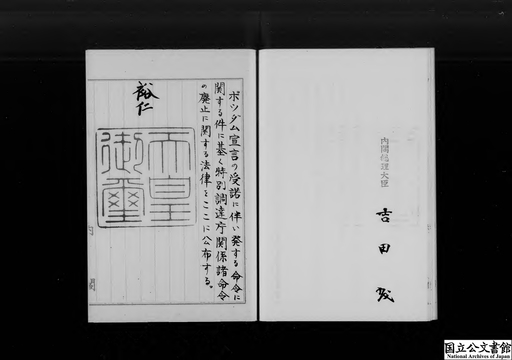 ポツダム宣言の受諾に伴い発する命令に
関する件に基く特別調達庁関係諸命令
の廃止に関する法律をここに公布する。
裕仁
天皇
御璽
内閣
内閣総理大臣
吉田茂
国立公文書館
National Archives of Japan